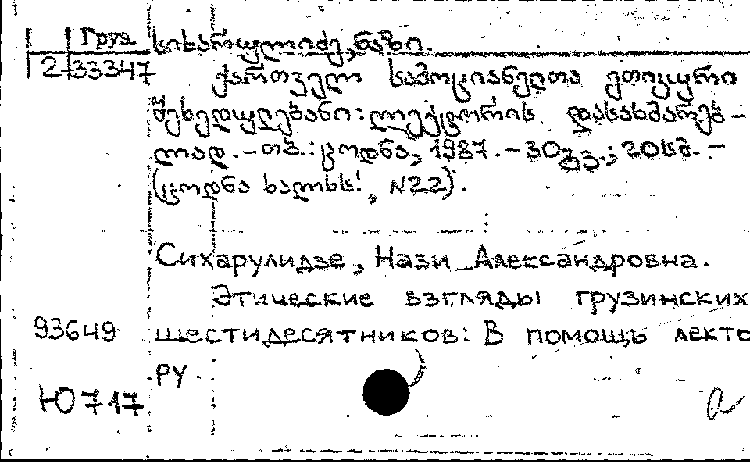 Груз
2-33347
სიხარულიძე, ნაზი.
ქართველ სამოციანელთა ეთიკური
შეხედულებანი: ლექტორის დასახმარებ-
ლად. - თბ.: ცოდნა, 1987. - 30გვ.; 20სმ. -
(ცოდნა ხალხს!, N22).
Сихарулидзе, Нази Александровна.
Этические взгляды грузинских
93649 шестидесятников: В помощь лекто
РУ
Ю717
a